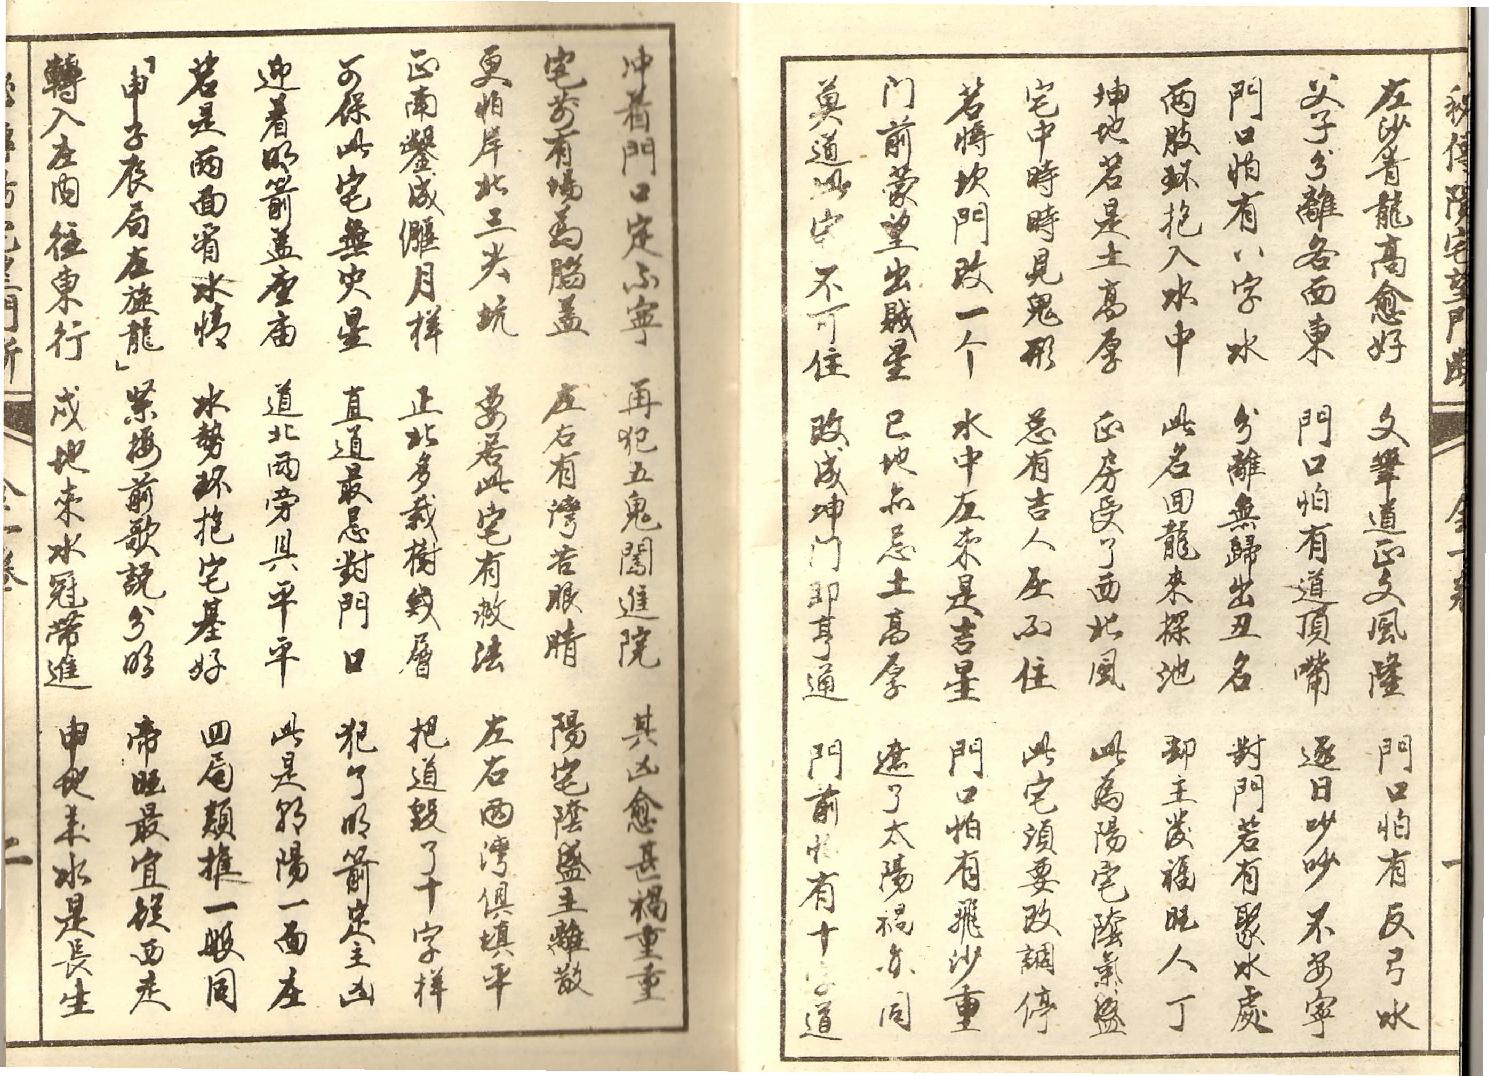 秘傳陽宅望門斷 全一卷 一
左沙青龍高愈好 文筆道正文風隆 門口怕有反弓水
父子分離各西東 門口怕有道頂嘴 逐日吵吵不安寧
門口怕有八字水 分離無歸出丑名 對門若有聚水處
两股环抱入水中 此名回龍來探池 却主發福旺人丁
坤地若是土高厚 正房受了西北風 此為陽宅陰氣盛
宅中時時見鬼形 总有吉人压不住 此宅須要改調停
若將坎門改一个 水中左来是吉星 門口怕有飛沙重
门前蒙望出贼星 巳地亦忌土高厚 遮了太陽禍亦同
莫道此宅不可住 改成坤门即亨通 門前怕有十字道
冲着門口定不寧 再犯五鬼闖進院 其凶愈甚禍重重
宅前有場為腦蓋 左右有灣若眼睛 陽宅陰盛主離散
更怕岸北三尖坑 要若此宅有救法 左右两灣俱填平
正南鑿成偃月样 正北多栽樹幾層 把道毀了十字样
可保此宅無灾星 直道最忌對門口 犯了明箭定主凶
迎着明箭盖座庙 道北兩旁具平平 此是邻陽一面左
若是两面有水情 水勢环抱宅基好 四局類推一般同
「申子辰局左旋龍」 紧接前歌説分明 帝旺最宜後西走
轉入左肉往東行 戌地来水冠帶進 申地来水是長生
全一卷 二